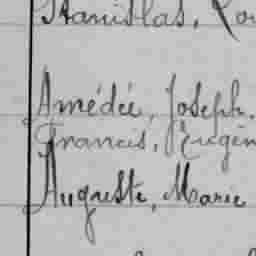 Stanislas,
Amédée, Joseph.
Francis, Eugèn
Auguste, Marie